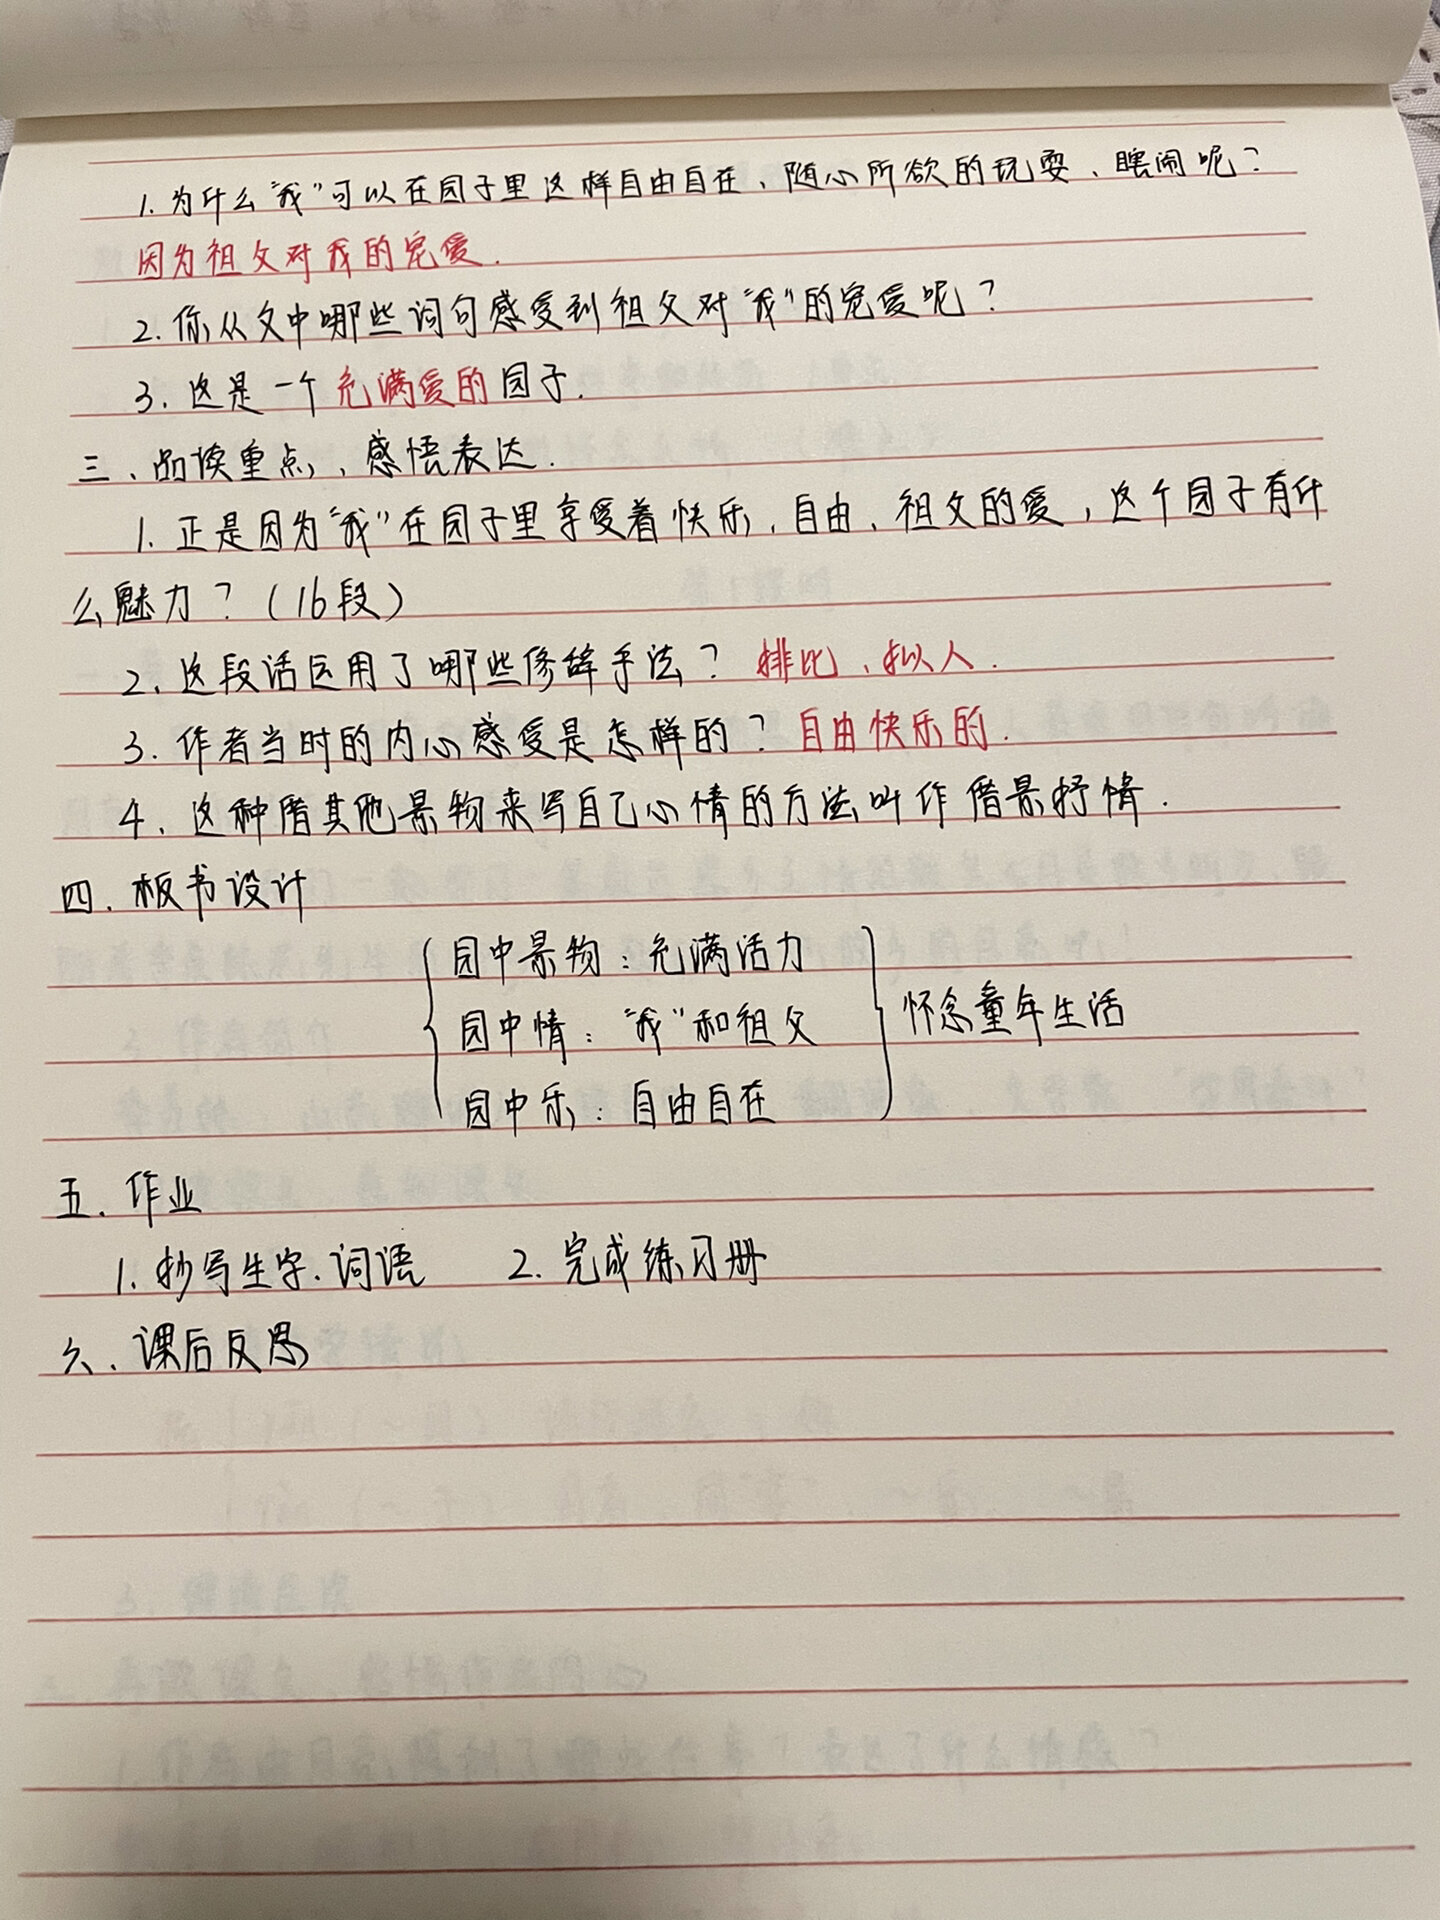 1.为什么“我”可以在园子里这样自由自在、随心所欲的玩耍、瞎闹呢？
因为祖父对我的宠爱.
2.你从文中哪些词句感受到祖父对“我”的宠爱呢？
3.这是一个充满爱的园子.
三、品读重点,感悟表达.
1.正是因为“我”在园子里享受着快乐、自由、祖父的爱,这个园子有什
么魅力？(16段)
2.这段话运用了哪些修辞手法？排比、拟人.
3.作者当时的内心感受是怎样的？自由快乐的.
4.这种借其他景物来写自己心情的方法叫作借景抒情.
四.板书设计
园中景物：充满活力
园中情：“我”和祖父
怀念童年生活
园中乐：自由自在
五.作业
1.抄写生字.词语 2.完成练习册
六、课后反思